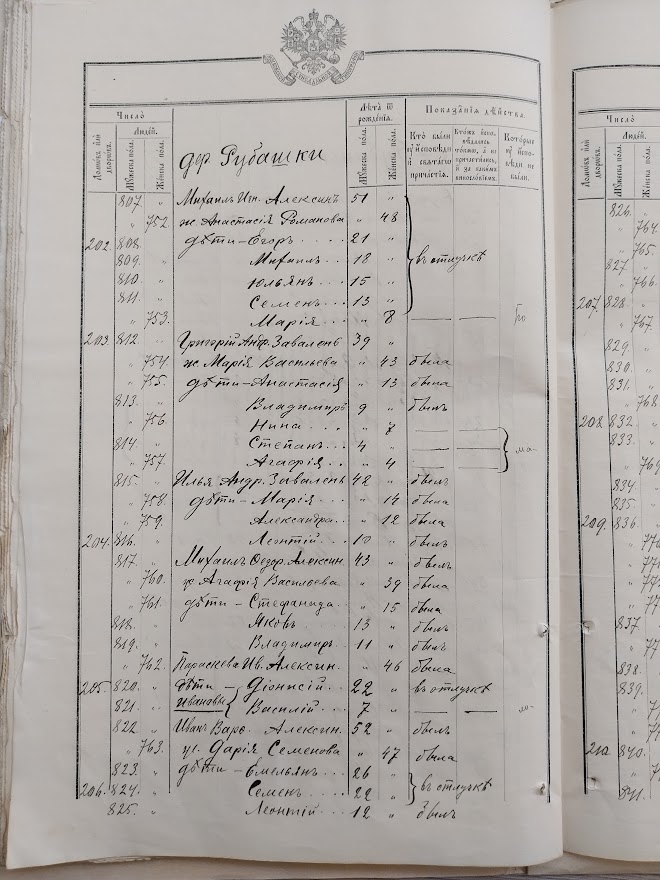 Число
Людей.
Домовъ или дворовъ.
Мужеска пола.
Женска пола.
дер Рубашки
Лѣта ѿ рожденїѧ.
Мужеска пола.
Женска пола.
Показанїѧ дѣйства.
Кто были ѹ исповѣди и свѧтагѡ причастїѧ.
Которые ѹ исповѣди не были.
807. " Михаилъ Игн. Алексинъ 51 "
" 752. ж Анастасія Романова " 48
202. 808. " дѣти – Егоръ 21 "
809. " Михаилъ 18 " въ отлучкѣ
810. " Юльянъ 15 "
811. " Семенъ 13 "
" 753. Марія " 8 — —
203. 812. " Григорій Анд. Заваленъ 39 "
" 754. ж Марія Васильева " 43 была
" 755. дѣти – Анастасія " 13 была
813. " Владимиръ 9 " былъ
" 756. Нина " 8 — —
814. " Степанъ 4 " — — ма-
" 757. Агафія " 4 — —
815. " Илья Андр. Заваленъ 42 " былъ
" 758. дѣти – Марія " 14 была
" 759. Александра " 12 была
204. 816. " Леонтій 10 " былъ
817. " Михаилъ Ѳедор. Алексин. 43 " былъ
" 760. ж Агафія Васильева " 39 была
" 761. дѣти – Стефанида " 15 была
818. " Яковъ 13 " былъ
819. " Владимиръ 11 " былъ
" 762. Параскева Ив. Алексин. " 46 была
205. 820. " Дѣти – Діонисій 22 " въ отлучкѣ
821. " Ивановы Василій 7 " — —
822. " Иванъ Варѳ. Алексин. 52 " былъ
" 763. Дарія Семенова " 47 была
823. " дѣти – Емельянъ 26 "
206. 824. " Семенъ 22 " въ отлучкѣ
825. " Леонтій 12 " былъ
Число
Людей.
Домовъ или дворовъ.
Мужеска пола.
Женска пола.
826.
" 764.
" 765.
827.
" 766.
207. 828.
" 767.
829.
830.
831.
" 768
832.
833.
834.
835.
209. 836.
837
838.
839.
210. 840.
841.